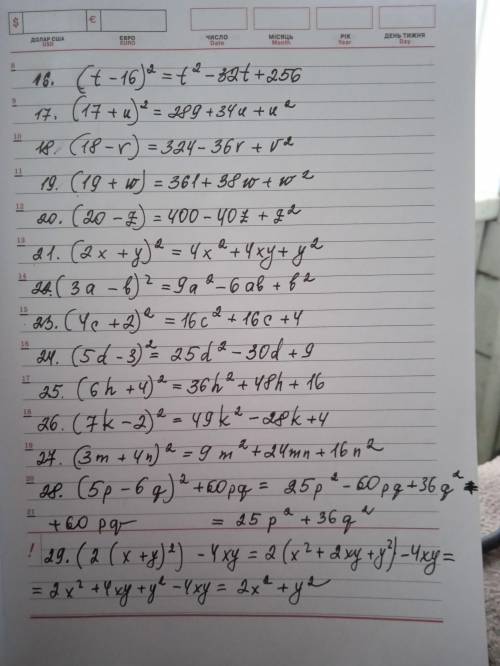 $ €
ДОЛАР США USD ЄВРО EURO ЧИСЛО Date МІСЯЦЬ Month РІК Year ДЕНЬ ТИЖНЯ Day
8 16. (t - 16)² = t² - 32t + 256
9 17. (17 + u)² = 289 + 34u + u²
10 18. (18 - r) = 324 - 36r + r²
11 19. (19 + w) = 361 + 38w + w²
12 20. (20 - z) = 400 - 40z + z²
13 21. (2x + y)² = 4x² + 4xy + y²
14 22. (3a - b)² = 9a² - 6ab + b²
15 23. (4c + 2)² = 16c² + 16c + 4
16 24. (5d - 3)² = 25d² - 30d + 9
17 25. (6h + 4)² = 36h² + 48h + 16
18 26. (7k - 2)² = 49k² - 28k + 4
19 27. (3m + 4n)² = 9m² + 24mn + 16n²
20 28. (5p - 6q)² + 60pq = 25p² - 60pq + 36q²
21 + 60pq = 25p² + 36q²
! 29. (2(x + y)²) - 4xy = 2(x² + 2xy + y²) - 4xy =
= 2x² + 4xy + y² - 4xy = 2x² + y²